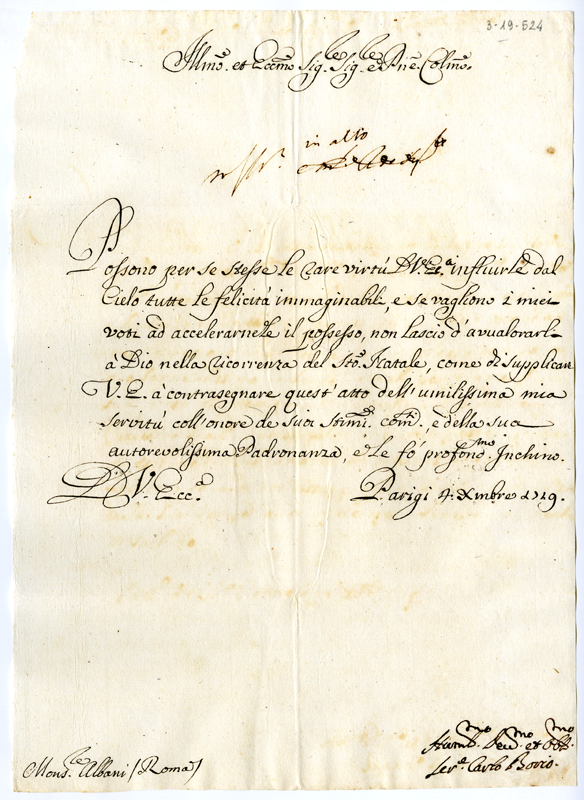 3-19-524
Illmo. et Eccmo Sig.le Sig.le e Pne. Colmo.
in alto
Possono per se stesse le rare virtù D V. Ec.a influirle dal
Cielo tutte le felicità immaginabili, e se vagliono i miei
voti ad accelerarnele il possesso, non lascio d'avvalorarli
à Dio nella ricorrenza del Sto. Natale, come di supplicare
V. E. à contrasegnare quest'atto dell'umilissima mia
servitù coll'onore de suoi stimmi. comti., e della sua
autorevolissima Padronanza, e Le fó profondmo. Inchino.
D V. Ecc.a
Parigi 4. Xmbre 1719.
Mons.le Albani (Roma)
Humo. Devmo. et Obbmo.
Ser.e Carlo Bovio.